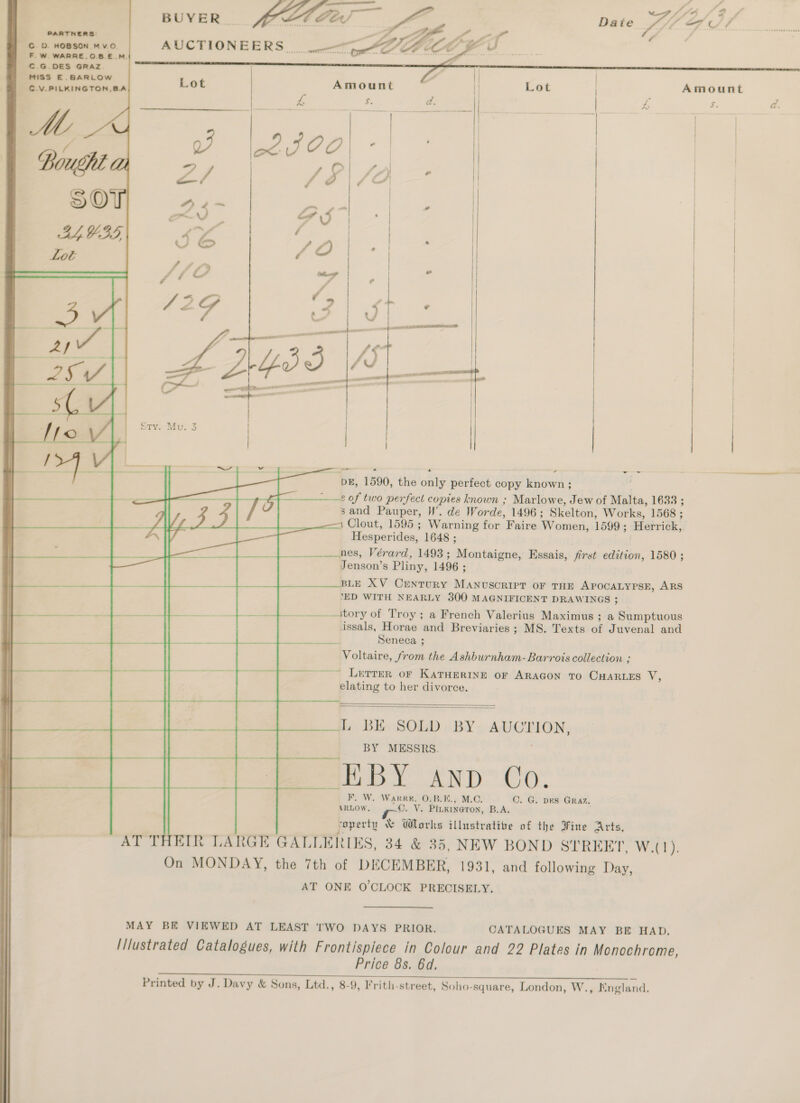 PARTNERS
G. D. HOBSON. M.V.O.
F. W. WARRE. O.B.E. M.
C. G. DES GRAZ
MISS E. BARLOW
C. V. PILKINGTON, B.A.
BUYER
Date
AUCTIONEERS
Lot Amount Lot Amount
£ s. d. £ s. d.
3 2300 -
21 18 10 -
25 95 - -
56 10 - -
110 7 - -
129 3 5 -
£ 2433 15
Bought a
SOT
34 & 35,
Lot
3 ✓
21 ✓
25 ✓
56 ✓
110 ✓
129 ✓
2433 15
Srv. Mu. 3
DE, 1590, the only perfect copy known ;
e of two perfect copies known ; Marlowe, Jew of Malta, 1633 ;
s and Pauper, W. de Worde, 1496 ; Skelton, Works, 1568 ;
Clout, 1595 ; Warning for Faire Women, 1599 ; Herrick,
Hesperides, 1648 ;
nes, Vérard, 1493 ; Montaigne, Essais, first edition, 1580 ;
Jenson's Pliny, 1496 ;
BLE XV CENTURY MANUSCRIPT OF THE APOCALYPSE, ARS
'ED WITH NEARLY 300 MAGNIFICENT DRAWINGS ;
itory of Troy ; a French Valerius Maximus ; a Sumptuous
issals, Horae and Breviaries ; MS. Texts of Juvenal and
Seneca ;
Voltaire, from the Ashburnham-Barrois collection ;
LETTER OF KATHERINE OF ARAGON TO CHARLES V,
elating to her divorce.
L BE SOLD BY AUCTION,
BY MESSRS.
EBY AND CO.
F. W. WARRE, O.B.E., M.C. C. G. DES GRAZ.
ARLOW. C. V. PILKINGTON, B.A.
operty & Works illustrative of the Fine Arts,
AT THEIR LARGE GALLERIES, 34 & 35, NEW BOND STREET, W.(1).
On MONDAY, the 7th of DECEMBER, 1931, and following Day,
AT ONE O'CLOCK PRECISELY.
MAY BE VIEWED AT LEAST TWO DAYS PRIOR. CATALOGUES MAY BE HAD.
Illustrated Catalogues, with Frontispiece in Colour and 22 Plates in Monochrome,
Price 8s. 6d.
Printed by J. Davy & Sons, Ltd., 8-9, Frith-street, Soho-square, London, W., England.